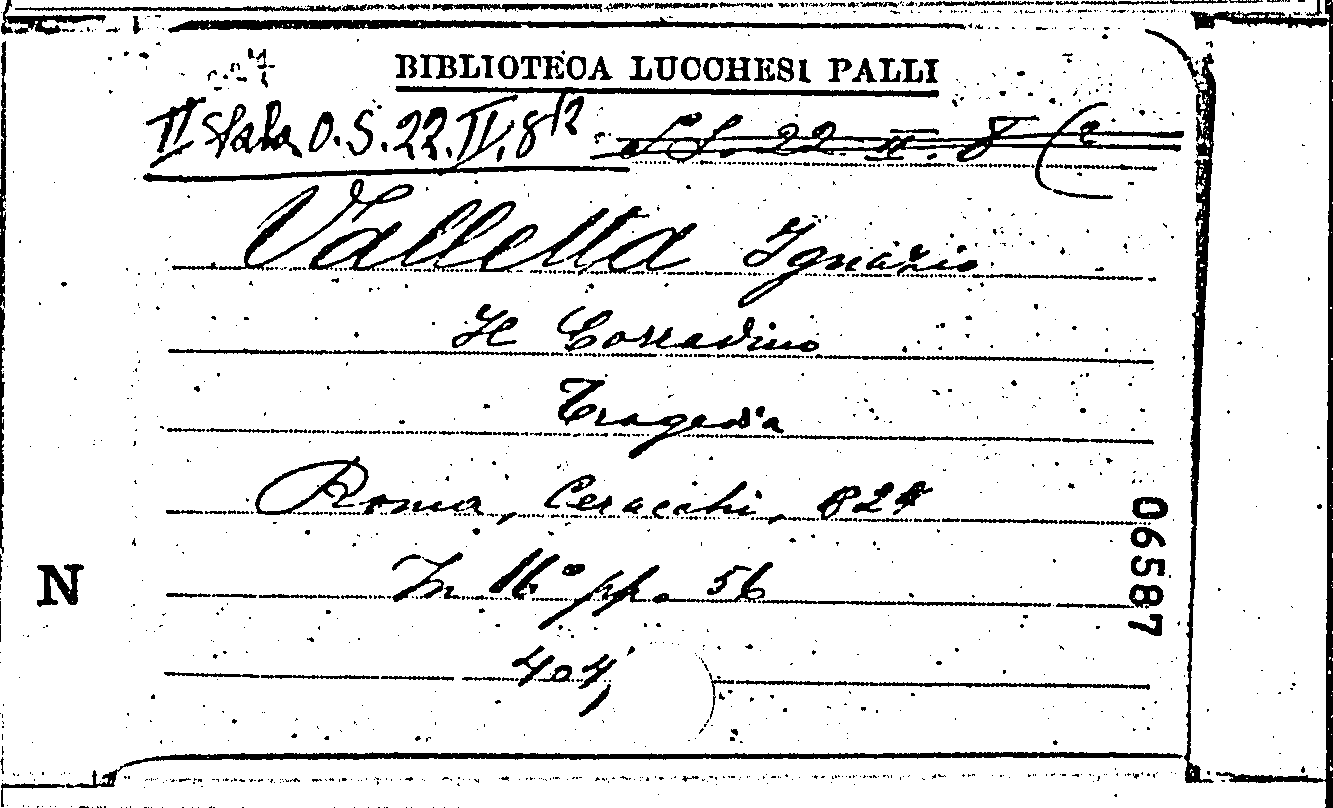 BIBLIOTECA LUCCHESI PALLI
II Sala O.S. 22. II. 8/2
S.S. 22 II. 8 (2
Valletta Ignazio
Il Corradino
Tragedia
Roma, Ceracchi, 824
In 16° pp. 56
N
06587
404